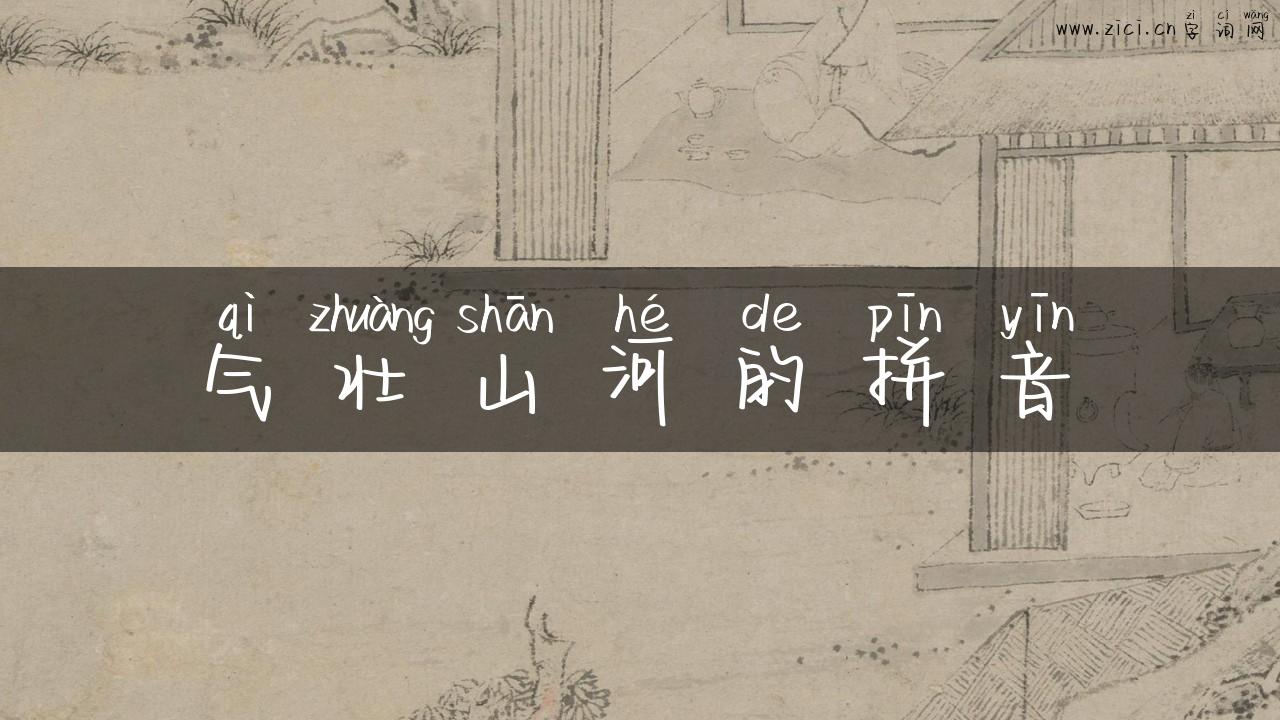 zì cí wǎng
www.zici.cn 字 词 网
qì zhuàng shān hé de pīn yīn
气 壮 山 河 的 拼 音